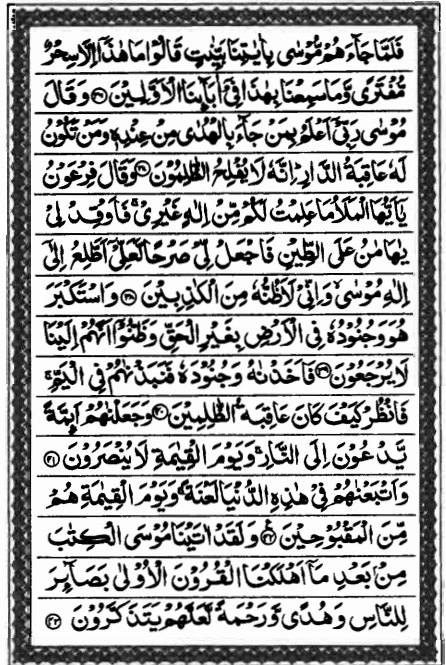 فَلَمَّا جَآءَهُمْ مُّوْسٰى بِاٰيٰتِنَا بَيِّنٰتٍ قَالُوْا مَا هٰذَاۤ اِلَّا سِحْرٌ
مُّفْتَرًى وَّمَا سَمِعْنَا بِهٰذَا فِيْۤ اٰبَآئِنَا الْاَوَّلِيْنَ ﴿۳۶﴾ وَقَالَ
مُوْسٰى رَبِّيْۤ اَعْلَمُ بِمَنْ جَآءَ بِالْهُدٰى مِنْ عِنْدِهٖ وَمَنْ تَكُوْنُ
لَهٗ عَاقِبَةُ الدَّارِ ؕ اِنَّهٗ لَا يُفْلِحُ الظّٰلِمُوْنَ ﴿۳۷﴾ وَقَالَ فِرْعَوْنُ
يٰۤاَيُّهَا الْمَلَاُ مَا عَلِمْتُ لَكُمْ مِّنْ اِلٰهٍ غَيْرِيْ ۚ فَاَوْقِدْ لِيْ
يٰهَامٰنُ عَلَى الطِّيْنِ فَاجْعَلْ لِّيْ صَرْحًا لَّعَلِّيْۤ اَطَّلِعُ اِلٰۤى
اِلٰهِ مُوْسٰى ۙ وَاِنِّيْ لَاَظُنُّهٗ مِنَ الْكٰذِبِيْنَ ﴿۳۸﴾ وَاسْتَكْبَرَ
هُوَ وَجُنُوْدُهٗ فِي الْاَرْضِ بِغَيْرِ الْحَقِّ وَظَنُّوْۤا اَنَّهُمْ اِلَيْنَا
لَا يُرْجَعُوْنَ ﴿۳۹﴾ فَاَخَذْنٰهُ وَجُنُوْدَهٗ فَنَبَذْنٰهُمْ فِي الْيَمِّ ۚ
فَانْظُرْ كَيْفَ كَانَ عَاقِبَةُ الظّٰلِمِيْنَ ﴿۴۰﴾ وَجَعَلْنٰهُمْ اَئِمَّةً
يَّدْعُوْنَ اِلَى النَّارِ ۚ وَيَوْمَ الْقِيٰمَةِ لَا يُنْصَرُوْنَ ﴿۴۱﴾
وَاَتْبَعْنٰهُمْ فِيْ هٰذِهِ الدُّنْيَا لَعْنَةً ۚ وَيَوْمَ الْقِيٰمَةِ هُمْ
مِّنَ الْمَقْبُوْحِيْنَ ﴿۴۲﴾ وَلَقَدْ اٰتَيْنَا مُوْسَى الْكِتٰبَ
مِنْۢ بَعْدِ مَاۤ اَهْلَكْنَا الْقُرُوْنَ الْاُوْلٰى بَصَآئِرَ
لِلنَّاسِ وَهُدًى وَّرَحْمَةً لَّعَلَّهُمْ يَتَذَكَّرُوْنَ ﴿۴۳﴾